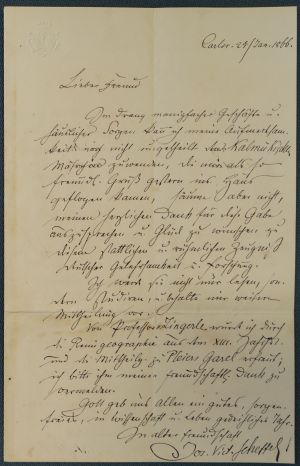 Carlsr. 24 Jan. 1866.
Lieber Freund
Im Drang manigfacher Geschäfte u.
häuslicher Sorgen kan ich meine Aufmerksam
keit noch nicht ungetheilt den Kalmükischen
Märchen zuwenden, die mir als so
freundl. Gruß gestern ins Haus
geflogen kamen, säume aber nicht,
meinen herzlichen Dank für diese Gabe
auszusprechen u. Glück zu wünschen zu
diesem stattlichen u. rühmlichen Zeugniß
deutscher Gelehrsamkeit u. Forschung.
Ich werde sie nicht nur lesen, son
dern studiren, u. behalte mir weitere
Mittheilung vor.
Von Professor Zingerle wurde ich durch
die Reimgeographie aus dem XIII. Jahrh.
und die Mittheilg. zu Pleiers Garel erfreut;
ich bitte ihm meinen freundschaftl. Dank zu
vermelden.
Gott geb uns Allen ein gutes, sorgen
freies, in Wissenschaft u. Leben gedeihliches Jahr.
In alter Freundschaft
Jos. Vict. Scheffel